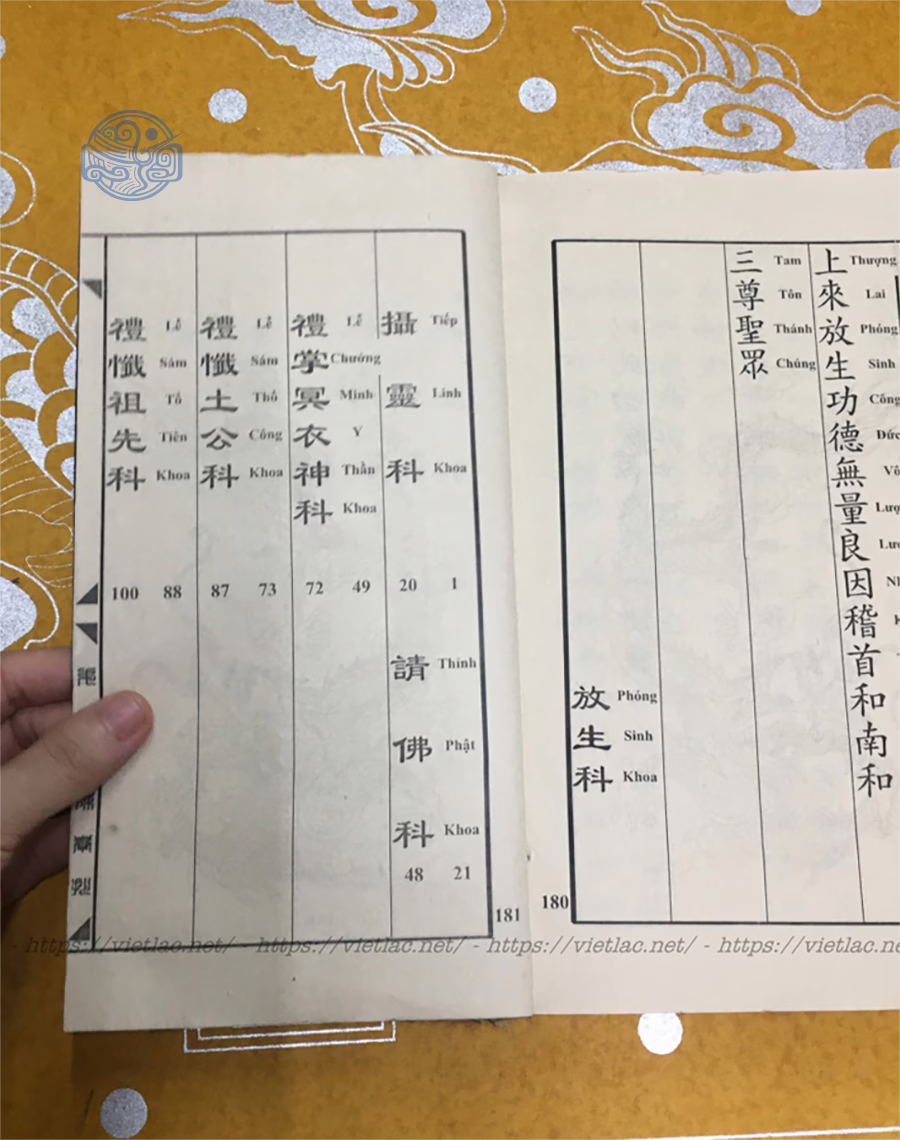 上 Thượng
來 Lai
放 Phóng
生 Sinh
功 Công
德 Đức
無 Vô
量
良
因
稽
首
和
南
和
三 Tam
尊 Tôn
聖 Thánh
眾 Chúng
放 Phóng
生 Sinh
科 Khoa
180
攝 Tiếp
靈 Linh
科 Khoa
20 1
請 Thỉnh
佛 Phật
科 Khoa
48 21
禮 Lễ
掌 Chưởng
冥 Minh
衣 Y
神 Thần
科 Khoa
72 49
禮 Lễ
懺 Sám
土 Thổ
公 Công
科 Khoa
87 73
禮 Lễ
懺 Sám
祖 Tổ
先 Tiên
科 Khoa
100 88
181
- https://vietlac.net/ - https://vietlac.net/ - https://vietlac.net/ - https://vietlac.net/